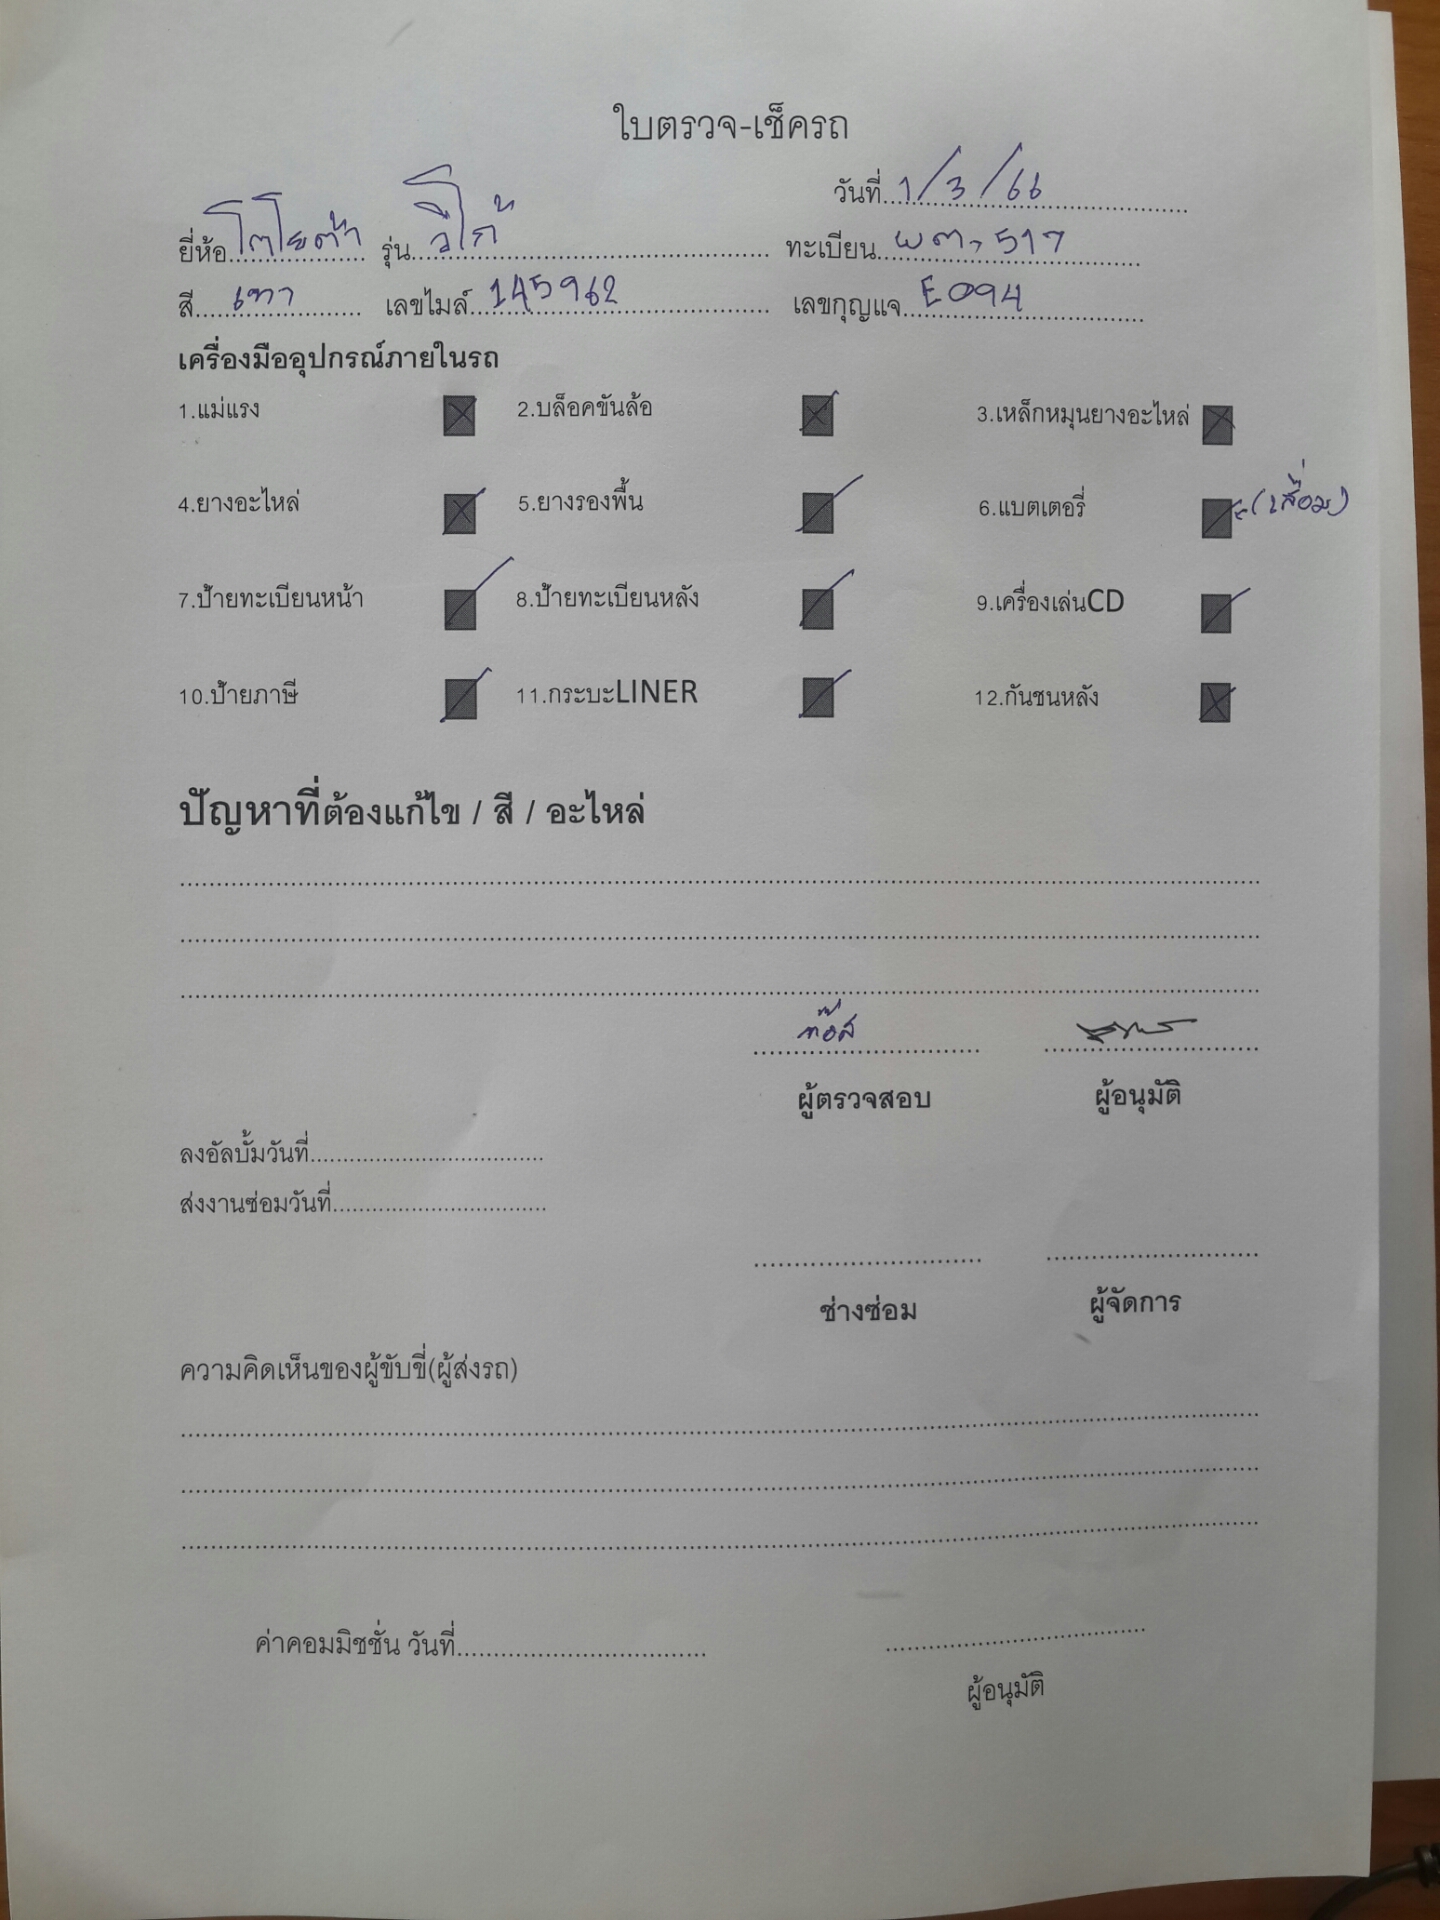 ใบตรวจ-เช็ครถ
วันที่ 1/3/66
ยี่ห้อ โตโยต้า รุ่น วีโก้ ทะเบียน ผต-517
สี เทา เลขไมล์ 145962 เลขกุญแจ E094
เครื่องมืออุปกรณ์ภายในรถ
1.แม่แรง 2.บล็อคขันล้อ 3.เหล็กหมุนยางอะไหล่
4.ยางอะไหล่ 5.ยางรองพื้น 6.แบตเตอรี่ (เสื่อม)
7.ป้ายทะเบียนหน้า 8.ป้ายทะเบียนหลัง 9.เครื่องเล่นCD
10.ป้ายภาษี 11.กระบะLINER 12.กันชนหลัง
ปัญหาที่ต้องแก้ไข / สี / อะไหล่
ผู้ตรวจสอบ ผู้อนุมัติ
ลงอัลบั้มวันที่
ส่งงานซ่อมวันที่
ช่างซ่อม ผู้จัดการ
ความคิดเห็นของผู้ขับขี่(ผู้ส่งรถ)
ค่าคอมมิชชั่น วันที่
ผู้อนุมัติ